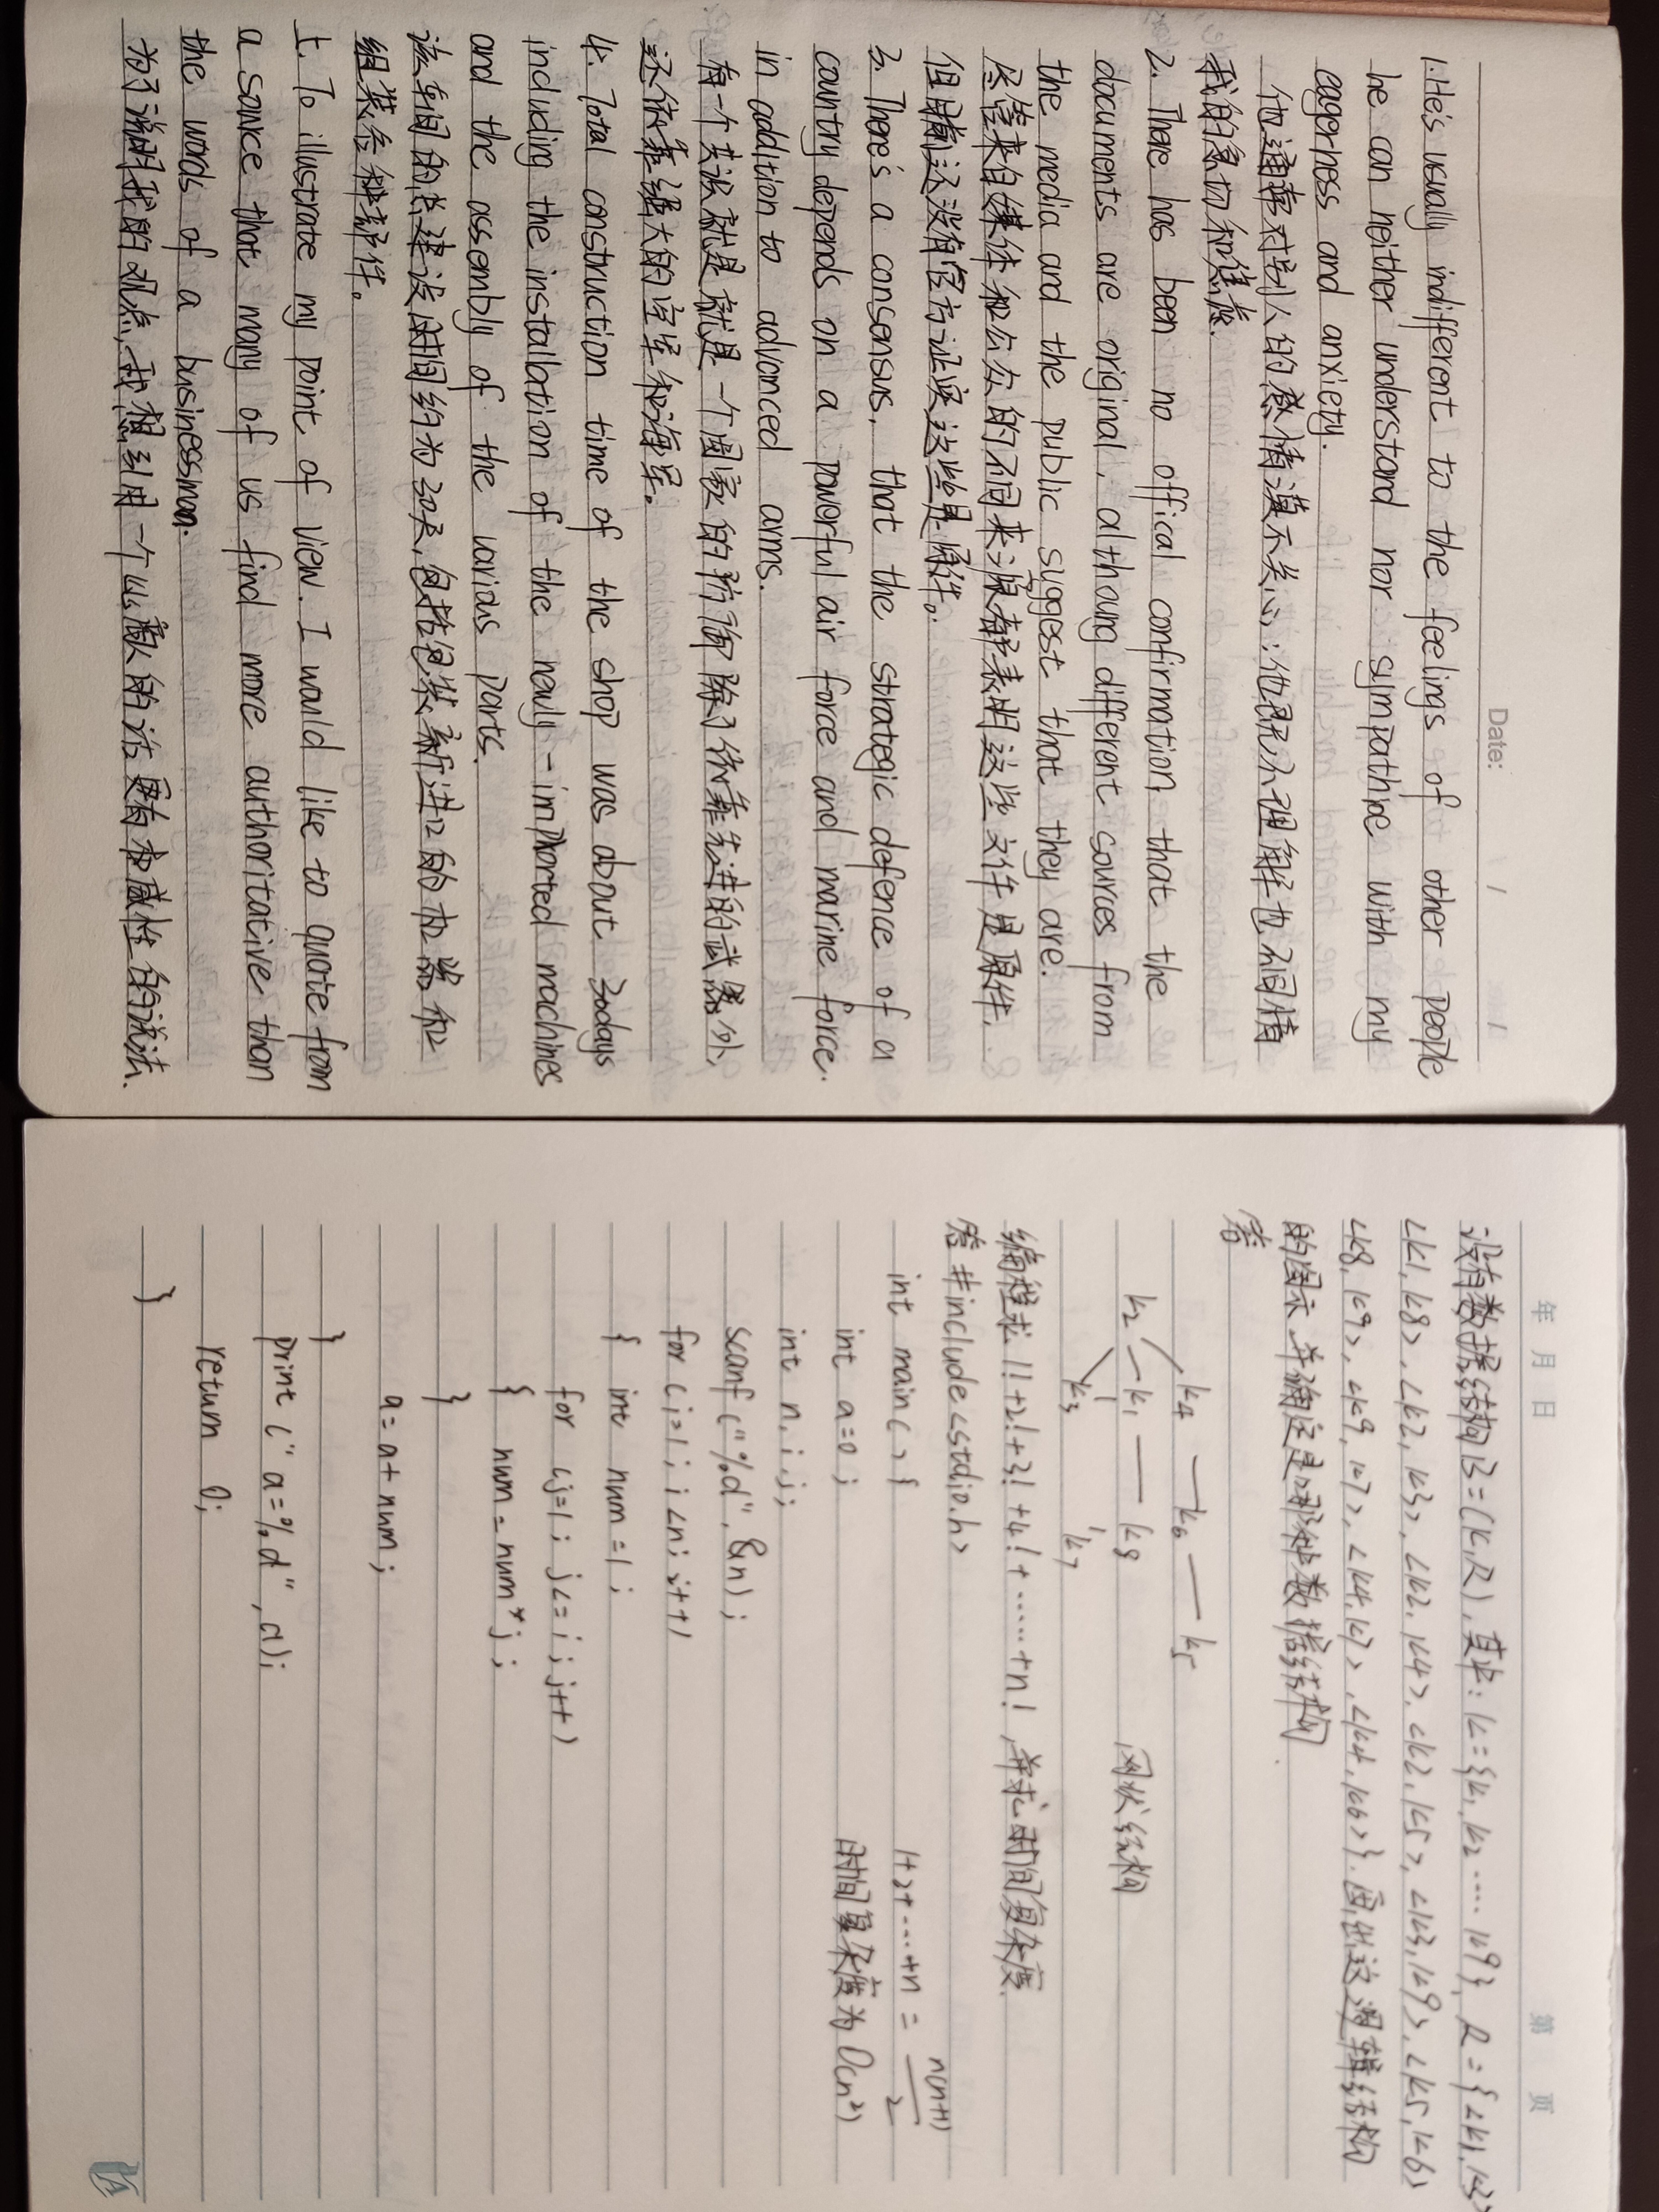 Date: / /
1. He's usually indifferent to the feelings of other people
he can neither understand nor sympathize with my
eagerness and anxiety.
他通常对别人的感情漠不关心；他既不理解也不同情
我的急切和焦虑.
2. There has been no offical confirmation that the
documents are original, althoug different sources from
the media and the public suggest that they are.
尽管来自媒体和公众的不同来源都表明这些文件是原件,
但目前还没有官方证实这些是原件。
3. There's a consensus, that the strategic defence of a
country depends on a powerful air force and marine force.
in addition to advanced arms.
有一个共识就是就是一个国家的防御除了依靠先进的武器外,
还依靠强大的空军和海军。
4. Total construction time of the shop was about 30days
including the installation of the newly-imported machines
and the assembly of the various parts.
该车间的总建设时间约为30天,包括包装新进口的机器和
组装各种部件。
5. To illustrate my point of view. I would like to quote from
a source that many of us find more authoritative than
the words of a businessman.
为了说明我的观点,我想引用一个比商人的话更有权威性的说法.
年 月 日 第 页
设有数据结构B=(K,R),其中:K={k1,k2.....k9},R={<k1,k3>
<k1,k8>,<k2,k3>,<k2,k4>,<k2,k5>,<k3,k9>,<k5,k6>
<k8,k9>,<k9,k7>,<k4,k7>,<k4,k6>}.画出这逻辑结构
的图示.并确定是哪种数据结构.
答
k4 — k6 — k5
k2 — k1 — k8 网状结构
k3 k7
编程求1!+2!+3!+4!+......+n!,并求时间复杂度.
答 #include<stdio.h>
int main(){ 1+2+....+n = n(n+1)/2
int a=0; 时间复杂度为O(n²)
int n,i,j;
scanf("%d",&n);
for(i=1;i<n;i++)
{ int num=1;
for (j=1;j<=i;j++)
{ num=num*j;
}
a=a+num;
}
print("a=%d",a);
return 0;
}